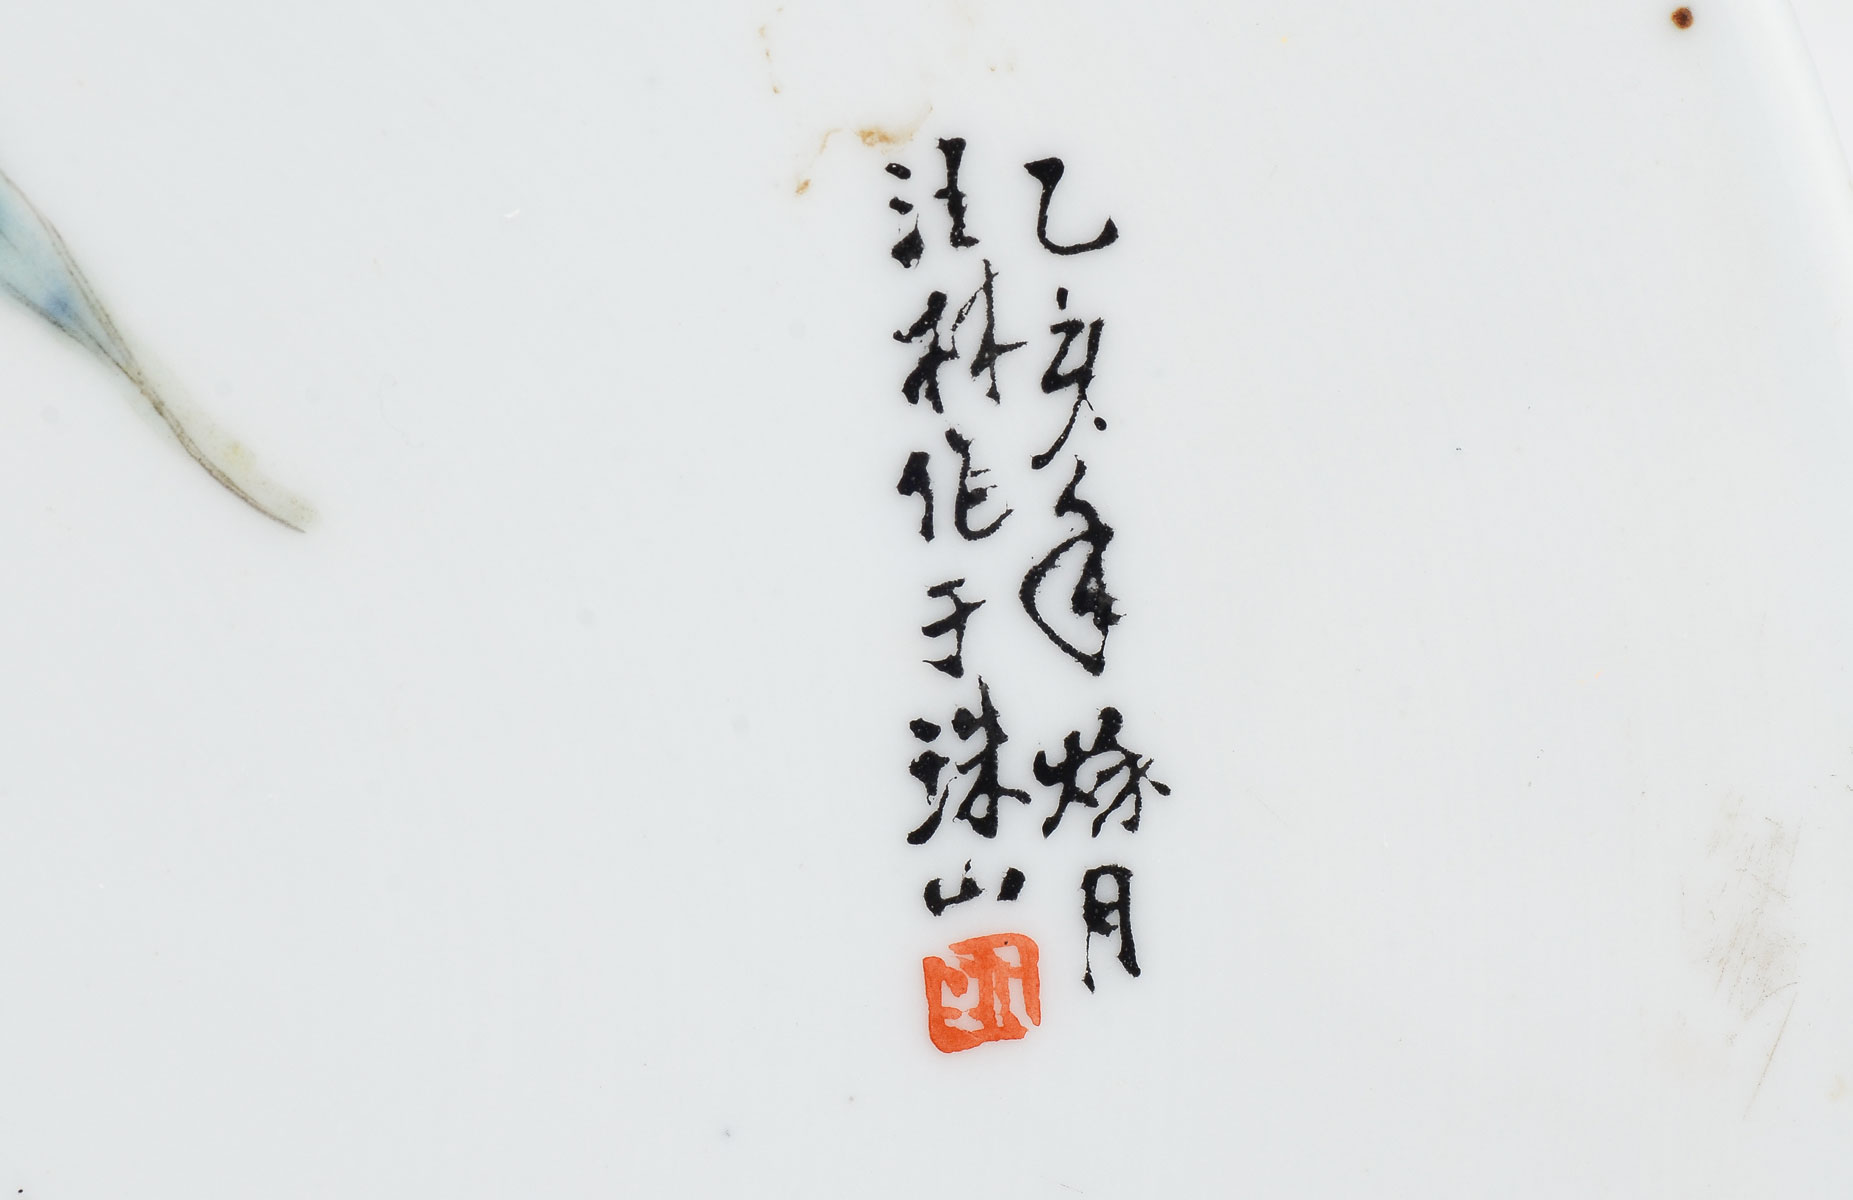 乙亥年秋月
汪林作于珠山